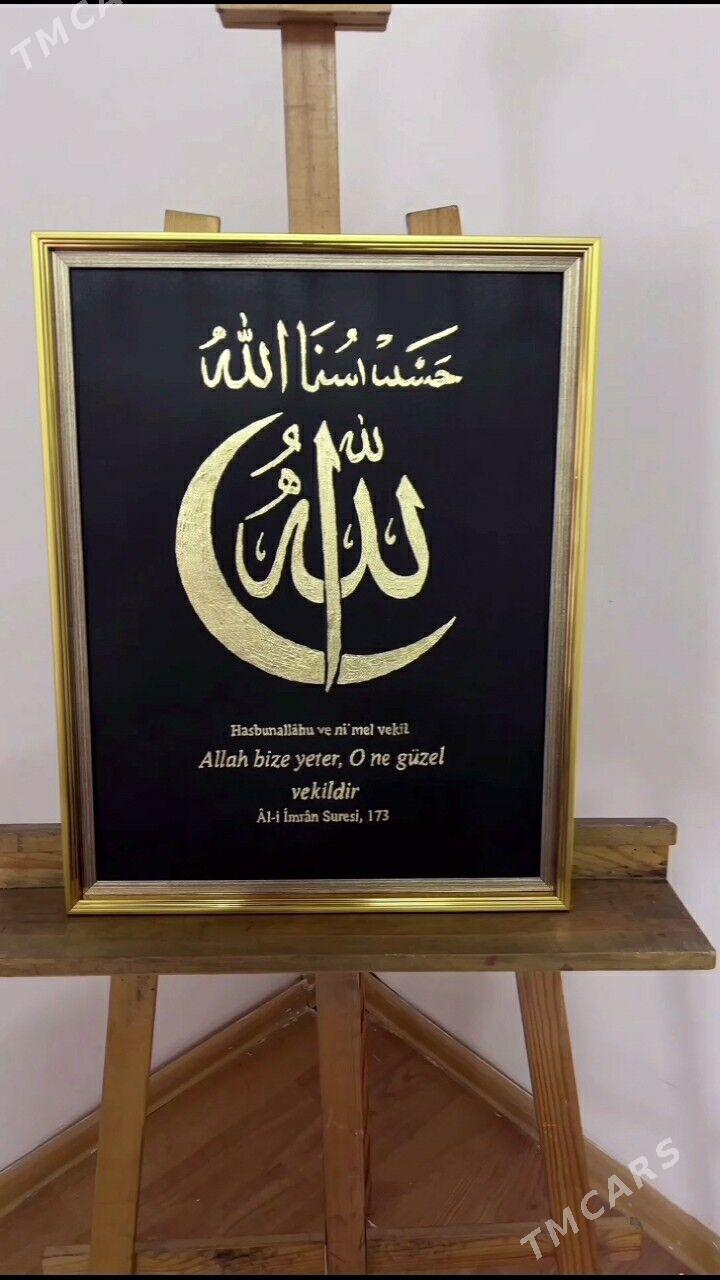 TMCA
حَسْبُنَا اللّٰهُ
الله
Hasbunallâhu ve ni'mel vekîl
Allah bize yeter, O ne güzel
vekildir
Âl-i İmrân Suresi, 173
TMCARS